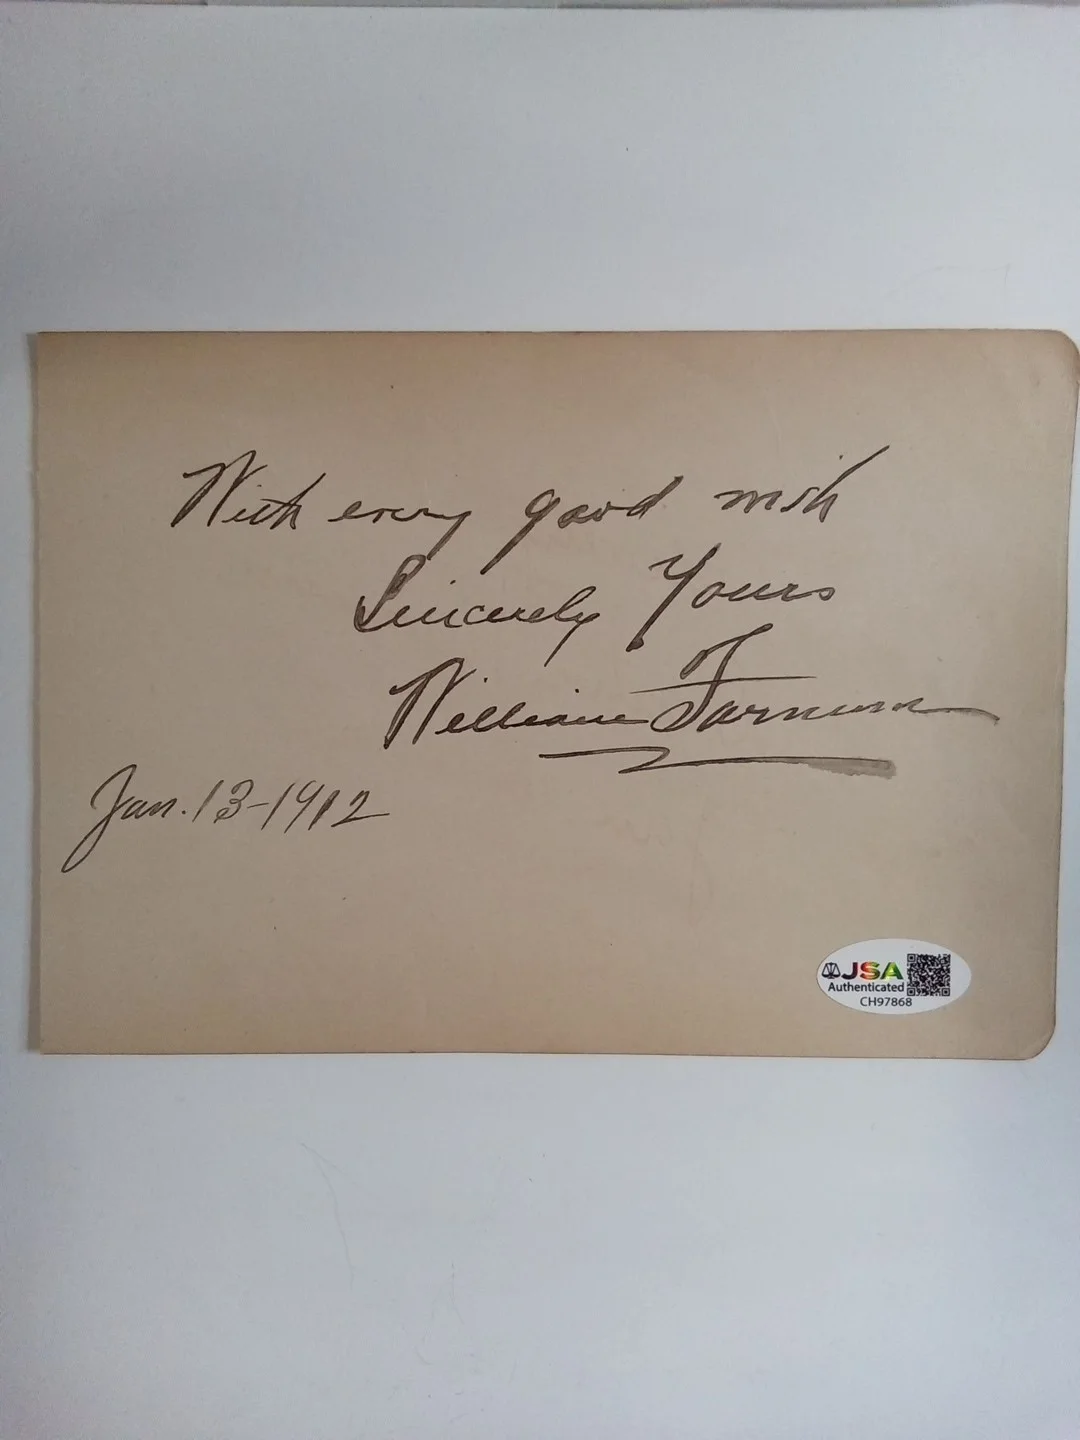 With every good wish
Sincerely Yours
William Farnum
Jan. 13-1912
JSA
Authenticated
CH97868